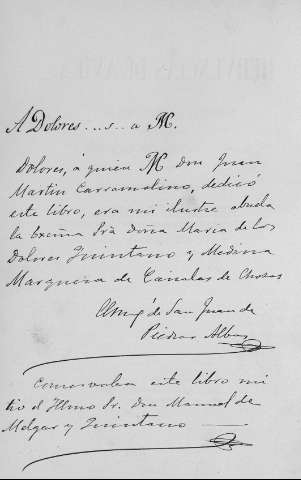 A Dolores...s..a M.
Dolores, á quien M Don Juan
Martin Carramolino, dedicó
este libro, era mi ilustre abuela
la Excma Sra Doña Maria de los
Dolores Quintano y Medina
Marquesa de Canales de Chozas
El Marqs de San Juan de
Piedras Albas
Conservaba este libro mi
tio el Ilmo Sr. Don Manuel de
Melgar y Quintano